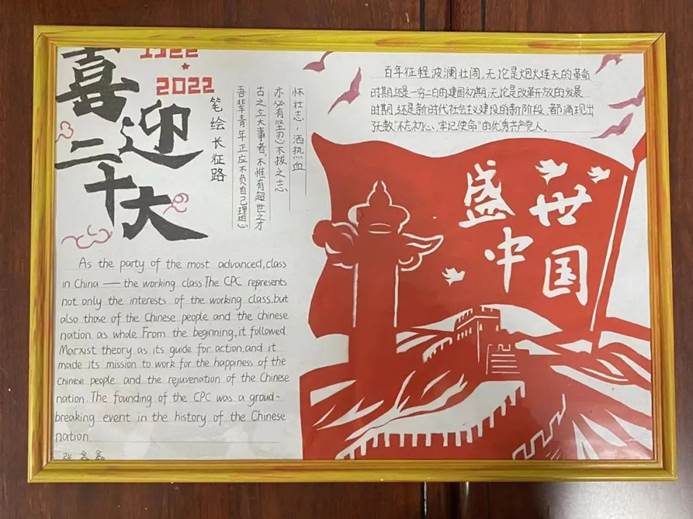 喜迎
二十大
1922
2022
笔绘长征路
怀壮志,洒热血
亦必有坚忍不拔之志
古之立大事者,不惟有超世之才
吾辈青年正应不负自己理想
百年征程,波澜壮阔,无论是炮火连天的革命
时期,还是一穷二白的建国初期,无论是改革开放的发展
时期,还是新时代社会主义建设的新阶段,都涌现出
无数"不忘初心、牢记使命"的优秀共产党人。
盛世
中国
As the party of the most advanced,class
in China — the working class.The CPC represents
not only the interests of the working class,but
also those of the Chinese people and the chinese
nation as whole.From the beginning,it followed
Marxist theory as its guide for action,and it
made its mission to work for the happiness of the
Chinese people and the rejuvenation of the Chinese
nation.The founding of the CPC was a groud-
breaking event in the history of the Chinese
nation